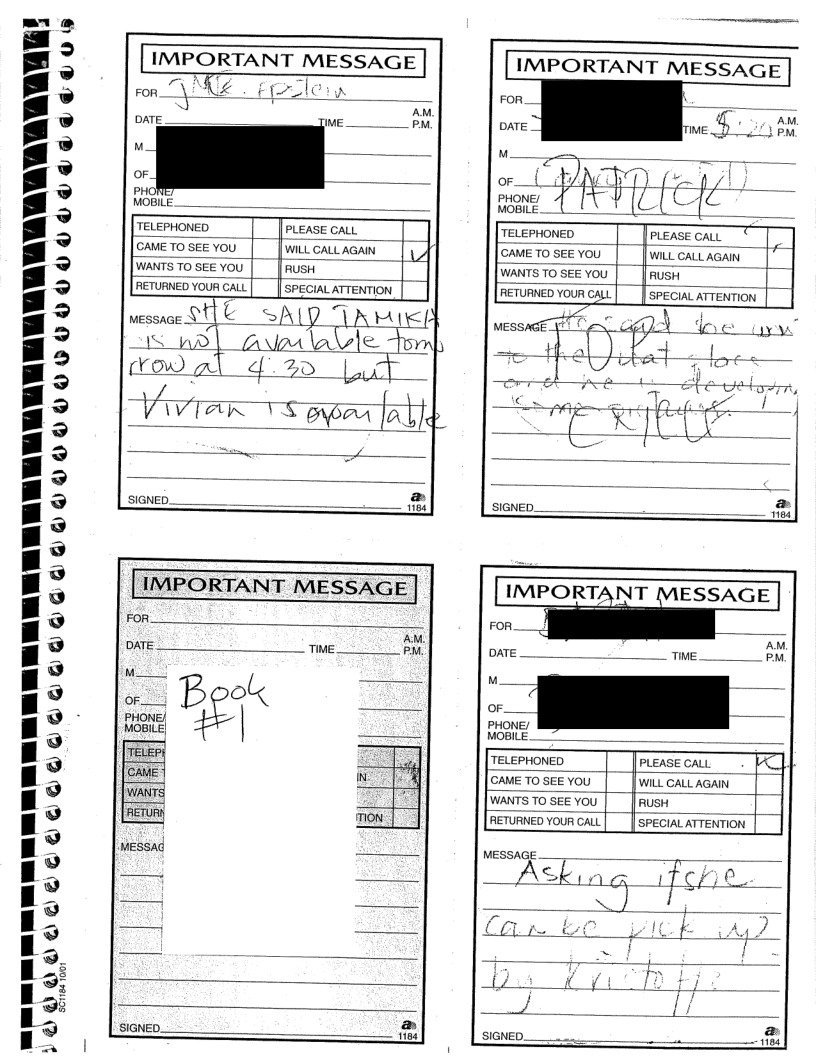 IMPORTANT MESSAGE
FOR Epstein
DATE TIME A.M. P.M.
M
OF
PHONE/
MOBILE
TELEPHONED PLEASE CALL
CAME TO SEE YOU WILL CALL AGAIN ✓
WANTS TO SEE YOU RUSH
RETURNED YOUR CALL SPECIAL ATTENTION
MESSAGE SHE SAID TAMIKA
is not available tomo
rrow at 4:30 but
Vivian is available
SIGNED
1184
IMPORTANT MESSAGE
FOR
DATE TIME :20 A.M. P.M.
M
OF
PHONE/
MOBILE PATRICK
TELEPHONED PLEASE CALL
CAME TO SEE YOU WILL CALL AGAIN
WANTS TO SEE YOU RUSH
RETURNED YOUR CALL SPECIAL ATTENTION
MESSAGE
to the
and he is
some
SIGNED
1184
IMPORTANT MESSAGE
FOR
DATE TIME A.M. P.M.
M
OF
PHONE/
MOBILE
Book
#1
TELEP
CAME IN
WANTS
RETURN TION
MESSAG
SIGNED
1184
SC1184 10/01
IMPORTANT MESSAGE
FOR
DATE TIME A.M. P.M.
M
OF
PHONE/
MOBILE
TELEPHONED PLEASE CALL ✓
CAME TO SEE YOU WILL CALL AGAIN
WANTS TO SEE YOU RUSH
RETURNED YOUR CALL SPECIAL ATTENTION
MESSAGE
Asking if she
can be pick up
by
SIGNED
1184